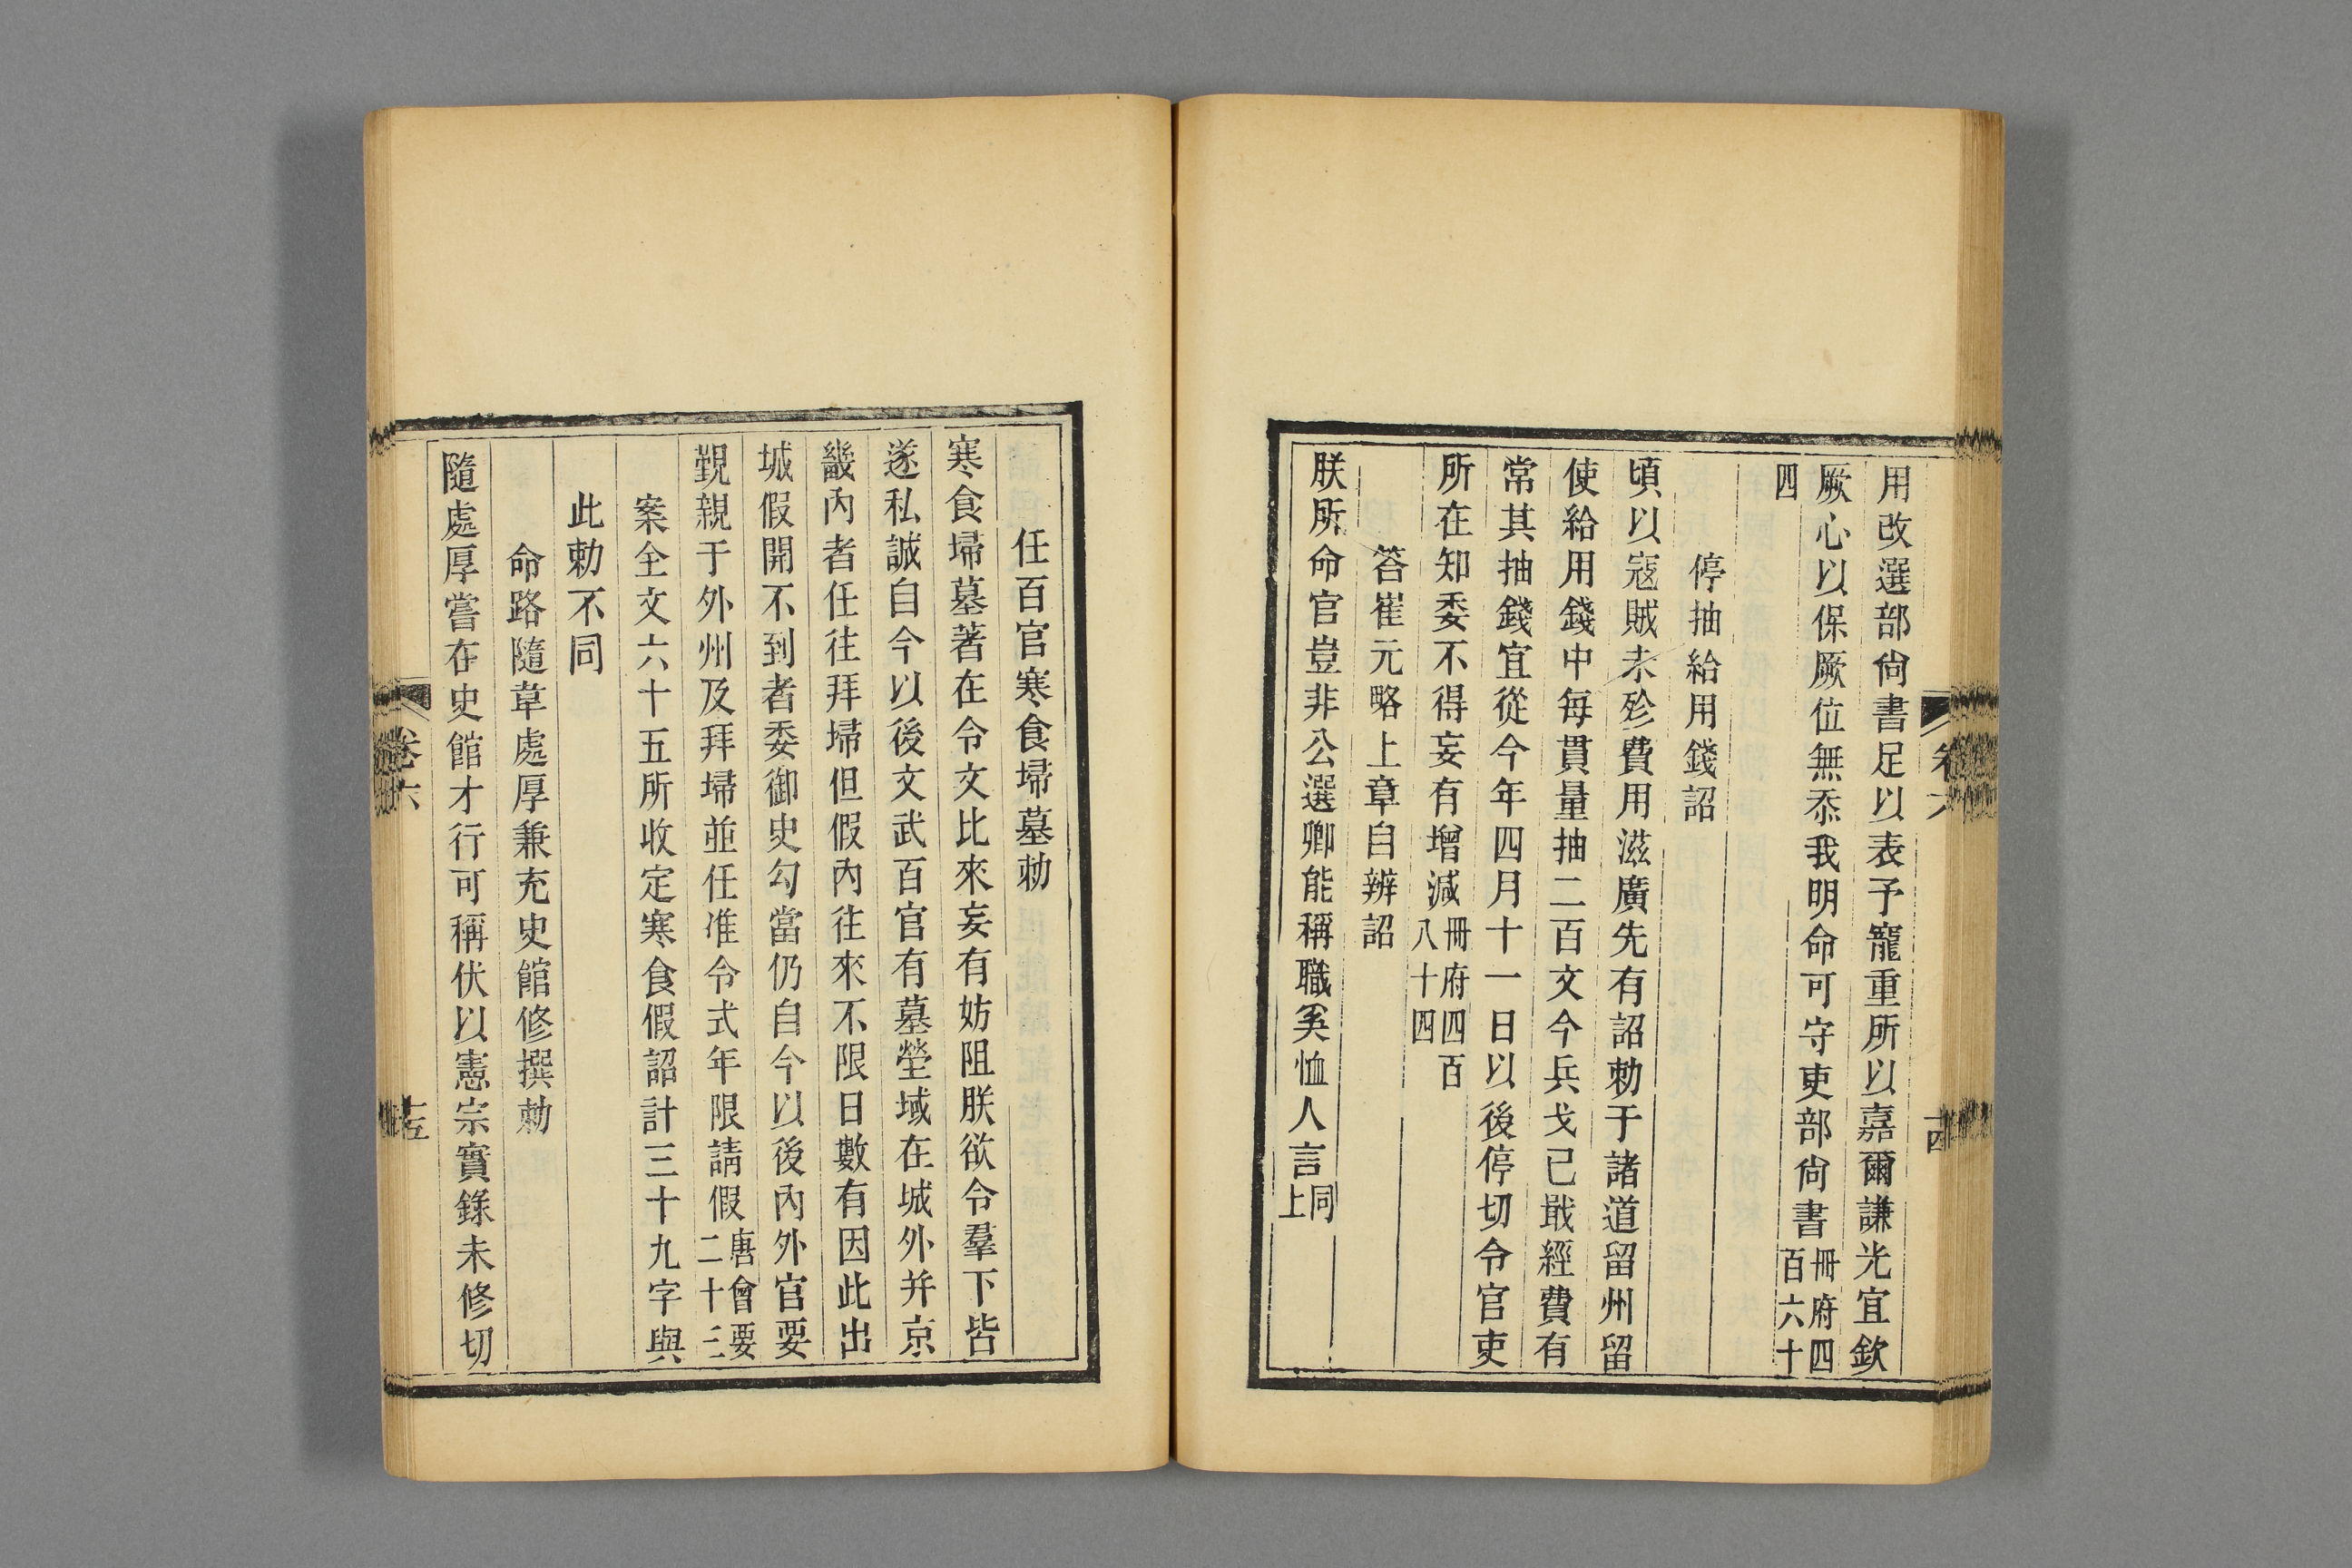 用改選部尙書足以表予寵重所以嘉爾謙光宜欽
厥心以保厥位無忝我明命可守吏部尙書冊府四百六十
四
停抽給用錢詔
頃以寇賊未殄費用滋廣先有詔勅于諸道留州留
使給用錢中每貫量抽二百文今兵戈已戢經費有
常其抽錢宜從今年四月十一日以後停切令官吏
所在知委不得妄有增減冊府四百八十四
答崔元略上章自辨詔
朕所命官豈非公選卿能稱職奚恤人言同上
卷六
十四
任百官寒食埽墓勅
寒食埽墓著在令文比來妄有妨阻朕欲令羣下皆
遂私誠自今以後文武百官有墓塋域在城外并京
畿內者任往拜埽但假內往來不限日數有因此出
城假開不到者委御史勾當仍自今以後內外官要
覲親于外州及拜埽並任准令式年限請假唐會要二十三
案全文六十五所收定寒食假詔計三十九字與
此勅不同
命路隨韋處厚兼充史館修撰勅
隨處厚嘗在史館才行可稱伏以憲宗實錄未修切
卷六
十五